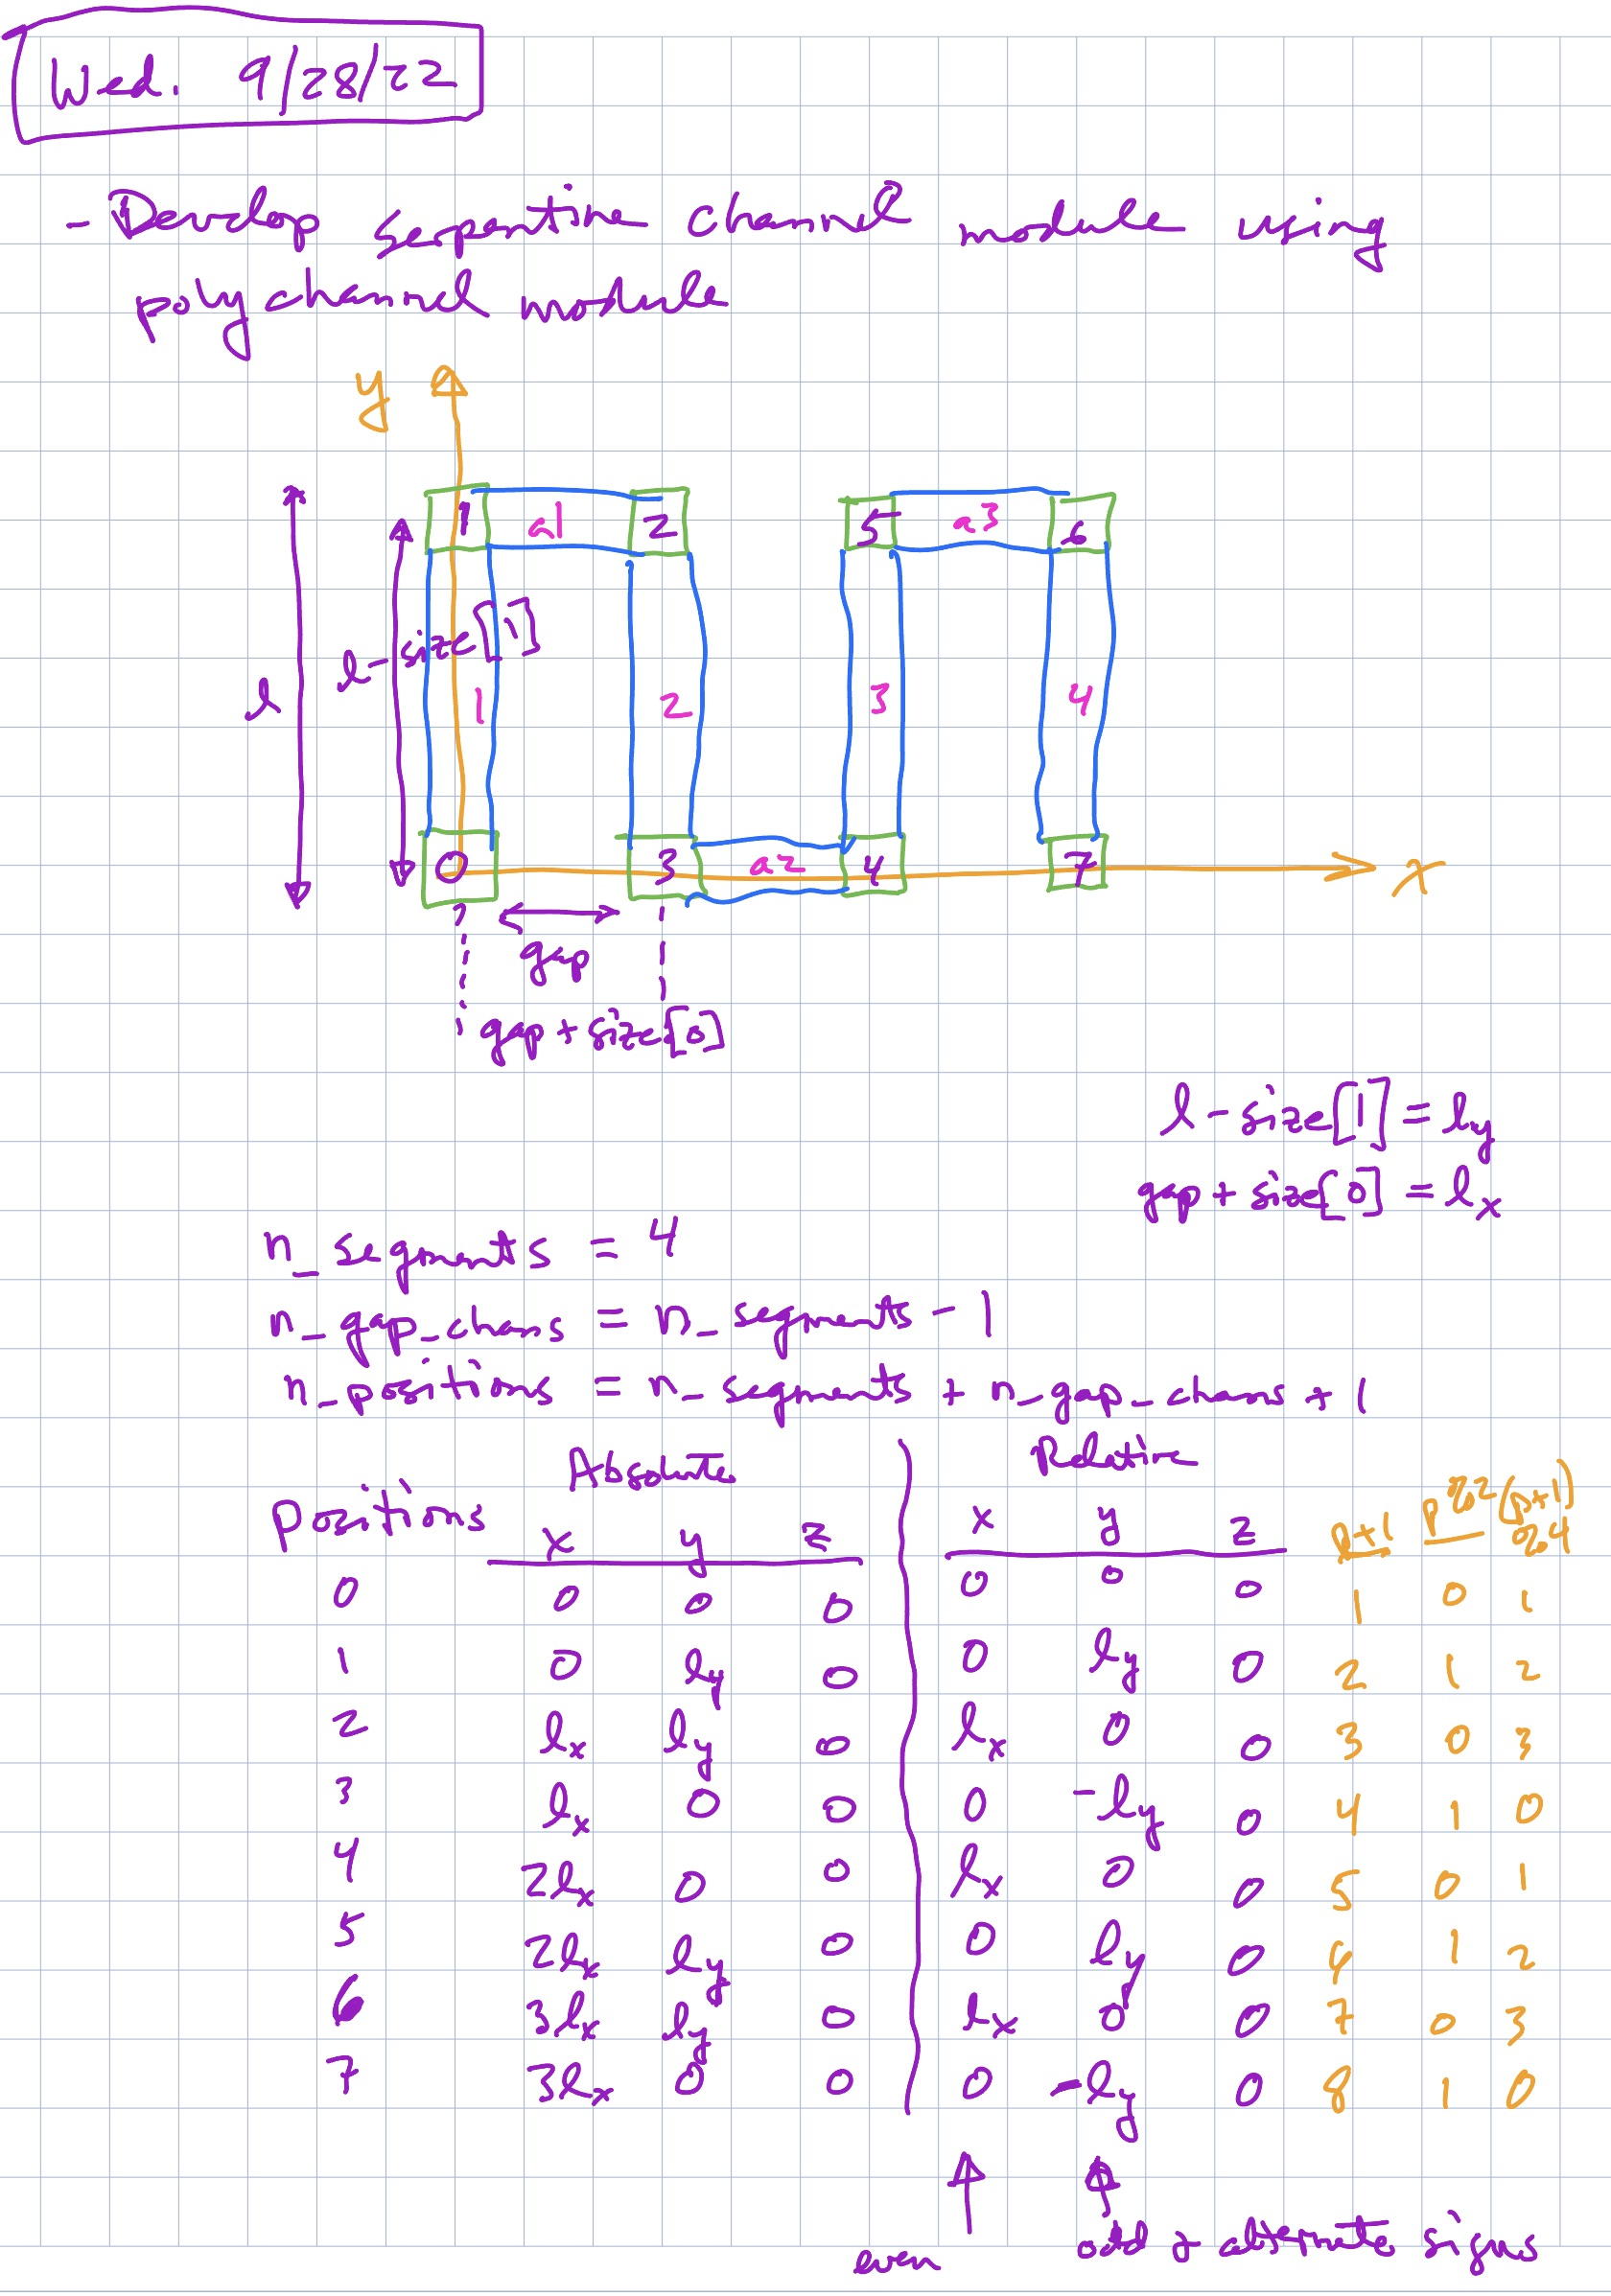 Wed. 9/28/22
- Develop serpentine channel module using
polychannel module
y
1 a1 2 5 a3 6
l l-size[1] 1 2 3 4
0 3 a2 4 7 x
gap
gap+size[0]
l-size[1] = ly
gap+size[0] = lx
n_segments = 4
n_gap_chans = n_segments - 1
n_positions = n_segments + n_gap_chans + 1
Absolute Relative
positions x y z x y z p+1 p%2 (p+1)%4
0 0 0 0 0 0 0 1 0 1
1 0 ly 0 0 ly 0 2 1 2
2 lx ly 0 lx 0 0 3 0 3
3 lx 0 0 0 -ly 0 4 1 0
4 2lx 0 0 lx 0 0 5 0 1
5 2lx ly 0 0 ly 0 6 1 2
6 3lx ly 0 lx 0 0 7 0 3
7 3lx 0 0 0 -ly 0 8 1 0
even odd + alternate signs